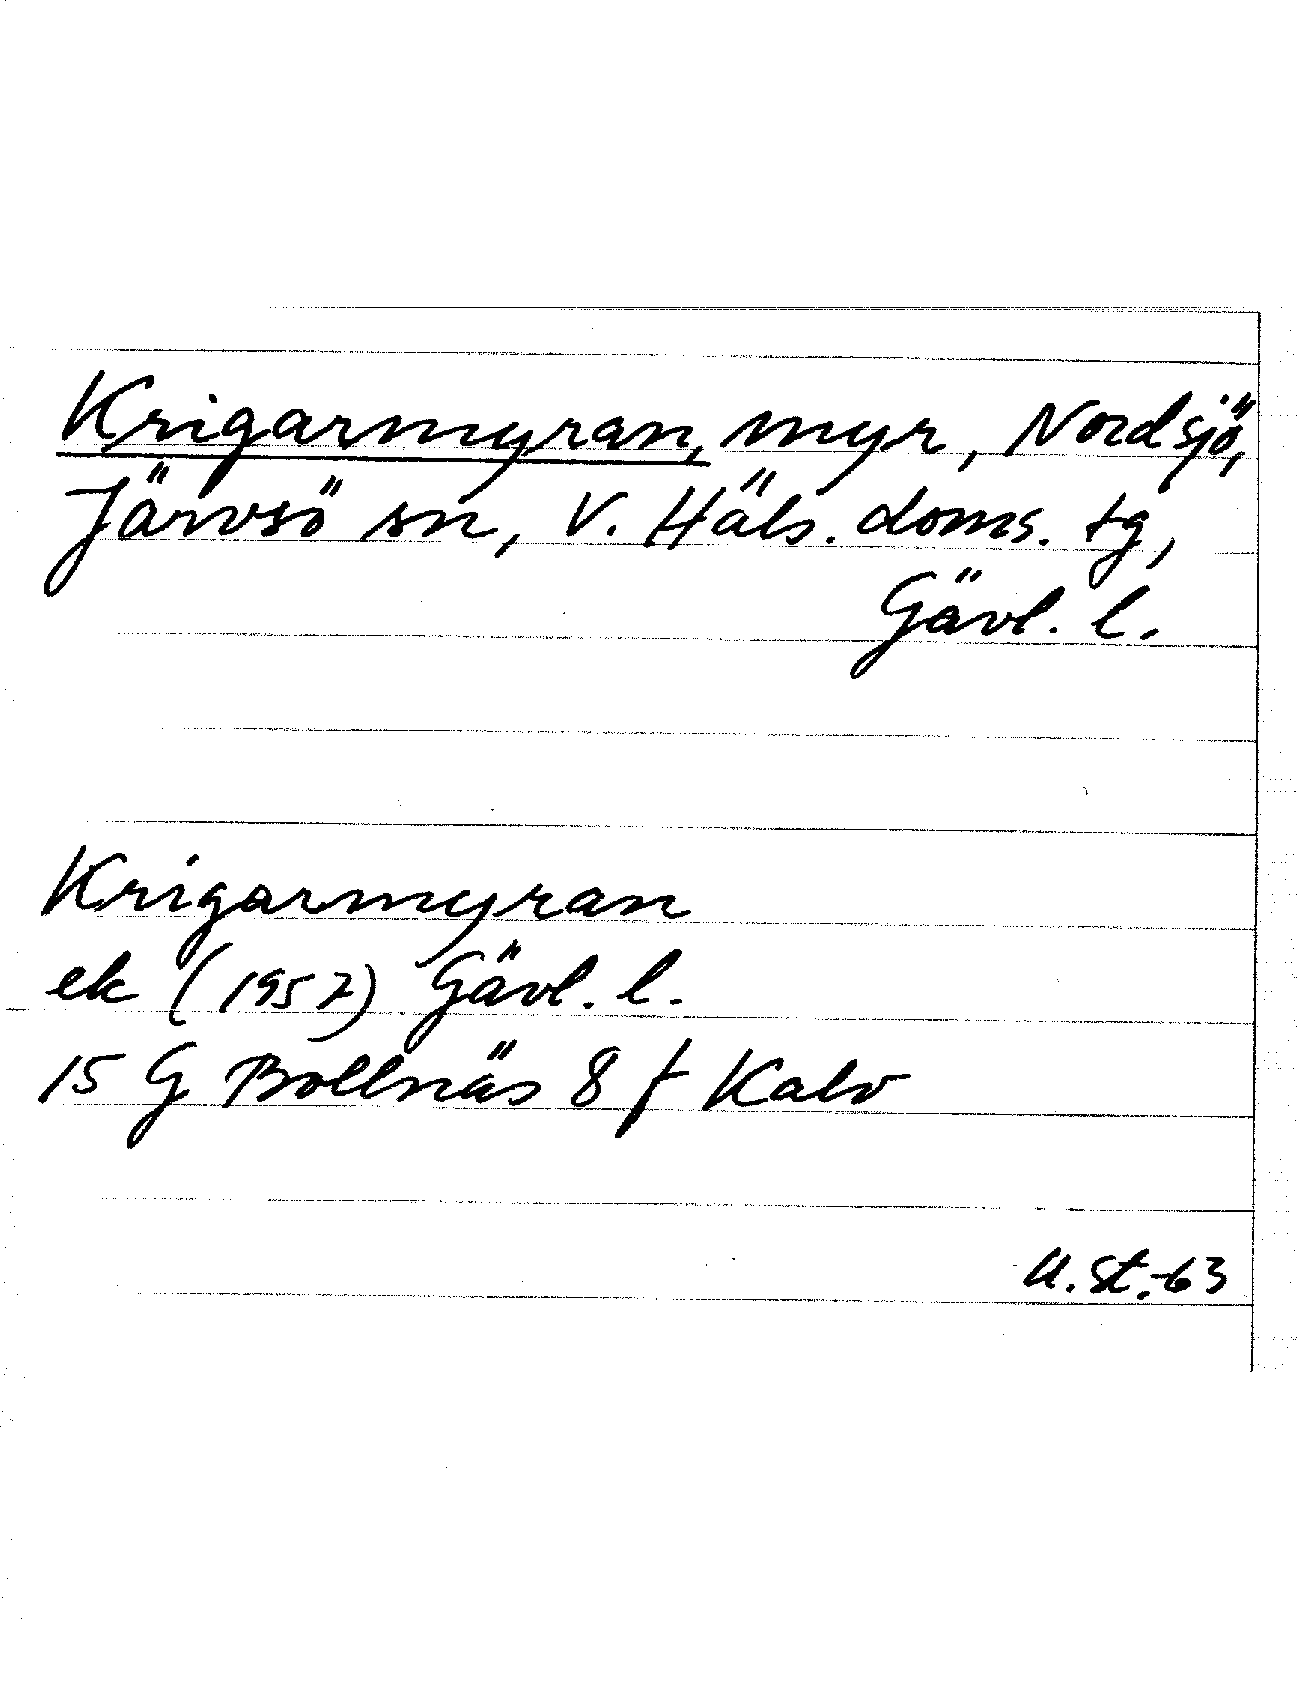 Krigarmyran, myr, Nordsjö,
Järvsö sn, V. Häls. doms. tg,
Gävl. l.
Krigarmyran
ek (1957) Gävl. l.
15 G Bollnäs 8 f Kalv
U. St.-63